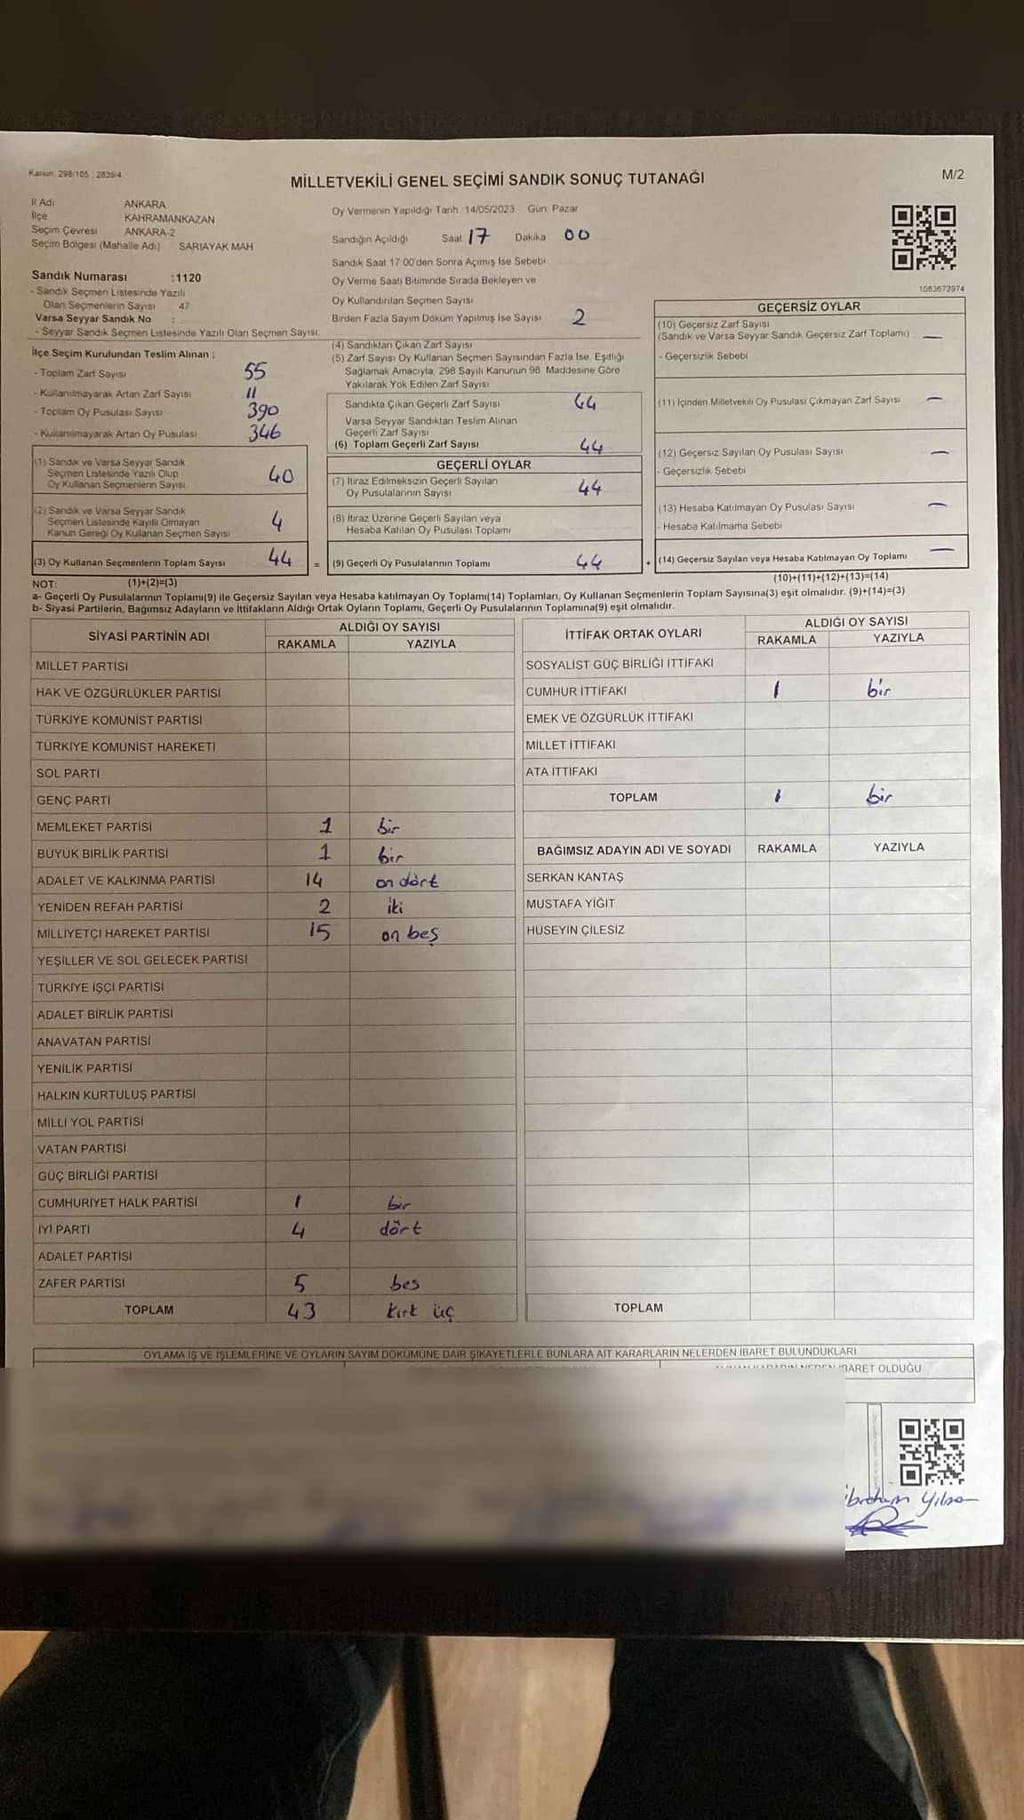 Kanun: 298/105 : 2839/4
MİLLETVEKİLİ GENEL SEÇİMİ SANDIK SONUÇ TUTANAĞI
M/2
İl Adı ANKARA
İlçe KAHRAMANKAZAN
Seçim Çevresi ANKARA-2
Seçim Bölgesi (Mahalle Adı) SARIAYAK MAH
Sandık Numarası :1120
- Sandık Seçmen Listesinde Yazılı
Olan Seçmenlerin Sayısı 47
Varsa Seyyar Sandık No :
- Seyyar Sandık Seçmen Listesinde Yazılı Olan Seçmen Sayısı:
İlçe Seçim Kurulundan Teslim Alınan ;
- Toplam Zarf Sayısı 55
- Kullanılmayarak Artan Zarf Sayısı 11
- Toplam Oy Pusulası Sayısı 390
- Kullanılmayarak Artan Oy Pusulası 346
(1) Sandık ve Varsa Seyyar Sandık
Seçmen Listesinde Yazılı Olup
Oy Kullanan Seçmenlerin Sayısı 40
(2) Sandık ve Varsa Seyyar Sandık
Seçmen Listesinde Kayıtlı Olmayan
Kanun Gereği Oy Kullanan Seçmen Sayısı 4
(3) Oy Kullanan Seçmenlerin Toplam Sayısı 44 =
Oy Vermenin Yapıldığı Tarih: 14/05/2023 Gün: Pazar
Sandığın Açıldığı Saat 17 Dakika 00
Sandık Saat 17:00'den Sonra Açımış İse Sebebi
Oy Verme Saati Bitiminde Sırada Bekleyen ve
Oy Kullandırılan Seçmen Sayısı
Birden Fazla Sayım Döküm Yapılmış İse Sayısı 2
(4) Sandıktan Çıkan Zarf Sayısı
(5) Zarf Sayısı Oy Kullanan Seçmen Sayısından Fazla İse, Eşitliği
Sağlamak Amacıyla, 298 Sayılı Kanunun 98. Maddesine Göre
Yakılarak Yok Edilen Zarf Sayısı
Sandıkta Çıkan Geçerli Zarf Sayısı 44
Varsa Seyyar Sandıktan Teslim Alınan
Geçerli Zarf Sayısı
(6) Toplam Geçerli Zarf Sayısı 44
GEÇERLİ OYLAR
(7) İtiraz Edilmeksizin Geçerli Sayılan
Oy Pusulalarının Sayısı 44
(8) İtiraz Üzerine Geçerli Sayılan veya
Hesaba Katılan Oy Pusulası Toplamı
(9) Geçerli Oy Pusulalarının Toplamı 44 +
1083673974
GEÇERSİZ OYLAR
(10) Geçersiz Zarf Sayısı
(Sandık ve Varsa Seyyar Sandık Geçersiz Zarf Toplamı) —
- Geçersizlik Sebebi
(11) İçinden Milletvekili Oy Pusulası Çıkmayan Zarf Sayısı —
(12) Geçersiz Sayılan Oy Pusulası Sayısı —
- Geçersizlik Sebebi
(13) Hesaba Katılmayan Oy Pusulası Sayısı —
- Hesaba Katılmama Sebebi
(14) Geçersiz Sayılan veya Hesaba Katılmayan Oy Toplamı —
NOT: (1)+(2)=(3) (10)+(11)+(12)+(13)=(14)
a- Geçerli Oy Pusulalarının Toplamı(9) ile Geçersiz Sayılan veya Hesaba katılmayan Oy Toplamı(14) Toplamları, Oy Kullanan Seçmenlerin Toplam Sayısına(3) eşit olmalıdır. (9)+(14)=(3)
b- Siyasi Partilerin, Bağımsız Adayların ve İttifakların Aldığı Ortak Oyların Toplamı, Geçerli Oy Pusulalarının Toplamına(9) eşit olmalıdır.
SİYASİ PARTİNİN ADI ALDIĞI OY SAYISI
RAKAMLA YAZIYLA
MİLLET PARTİSİ
HAK VE ÖZGÜRLÜKLER PARTİSİ
TÜRKİYE KOMÜNİST PARTİSİ
TÜRKİYE KOMÜNİST HAREKETİ
SOL PARTİ
GENÇ PARTİ
MEMLEKET PARTİSİ 1 bir
BÜYÜK BİRLİK PARTİSİ 1 bir
ADALET VE KALKINMA PARTİSİ 14 on dört
YENİDEN REFAH PARTİSİ 2 iki
MİLLİYETÇİ HAREKET PARTİSİ 15 on beş
YEŞİLLER VE SOL GELECEK PARTİSİ
TÜRKİYE İŞÇİ PARTİSİ
ADALET BİRLİK PARTİSİ
ANAVATAN PARTİSİ
YENİLİK PARTİSİ
HALKIN KURTULUŞ PARTİSİ
MİLLİ YOL PARTİSİ
VATAN PARTİSİ
GÜÇ BİRLİĞİ PARTİSİ
CUMHURİYET HALK PARTİSİ 1 bir
İYİ PARTİ 4 dört
ADALET PARTİSİ
ZAFER PARTİSİ 5 bes
TOPLAM 43 kırk üç
İTTİFAK ORTAK OYLARI ALDIĞI OY SAYISI
RAKAMLA YAZIYLA
SOSYALİST GÜÇ BİRLİĞİ İTTİFAKI
CUMHUR İTTİFAKI 1 bir
EMEK VE ÖZGÜRLÜK İTTİFAKI
MİLLET İTTİFAKI
ATA İTTİFAKI
TOPLAM 1 bir
BAĞIMSIZ ADAYIN ADI VE SOYADI RAKAMLA YAZIYLA
SERKAN KANTAŞ
MUSTAFA YİĞİT
HÜSEYİN ÇİLESİZ
TOPLAM
OYLAMA İŞ VE İŞLEMLERİNE VE OYLARIN SAYIM DÖKÜMÜNE DAİR ŞİKAYETLERLE BUNLARA AİT KARARLARIN NELERDEN İBARET BULUNDUKLARI
OLDUĞU